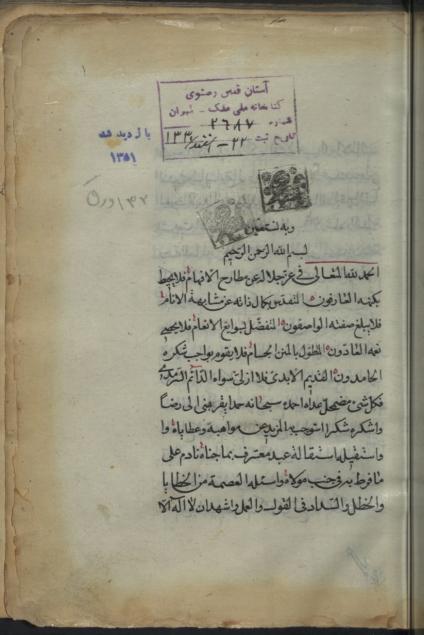 آستان قدس رضوی
کتابخانه ملی ملک - تهران
شماره ۲۶۸۷
تاریخ ثبت ۲۲ - اسفند ۱۳۳
بازدید شد
۱۳۵۱
۱۳۲ ورق
وبه نستعین
بسم الله الرحمن الرحیم
الحمد لله المتعالی فی عز جلاله عن مطارح الافهام فلا یحیط
بکنهه العارفون المتقدس بکمال ذاته عن مشابهة الانام
فلا یبلغ صفته الواصفون المتفضل بسوابغ الانعام فلا یحصی
نعمه العادون المتطول بالمنن الجسام فلا یقوم بواجب شکره
الحامدون القدیم الابدی فلا ازلی سواه الدائم السرمدی
فکل شیء مضمحل عداه احمده سبحانه حمدا یقربنی الی رضاه
واشکره شکرا استوجب به المزید من مواهبه وعطایاه
واستقیله استقالة عبد معترف بما جناه نادم علی
ما فرط به فی جنب مولاه واسئله العصمة من الخطایا
والخطل والسداد فی القول والعمل واشهد ان لا اله الا